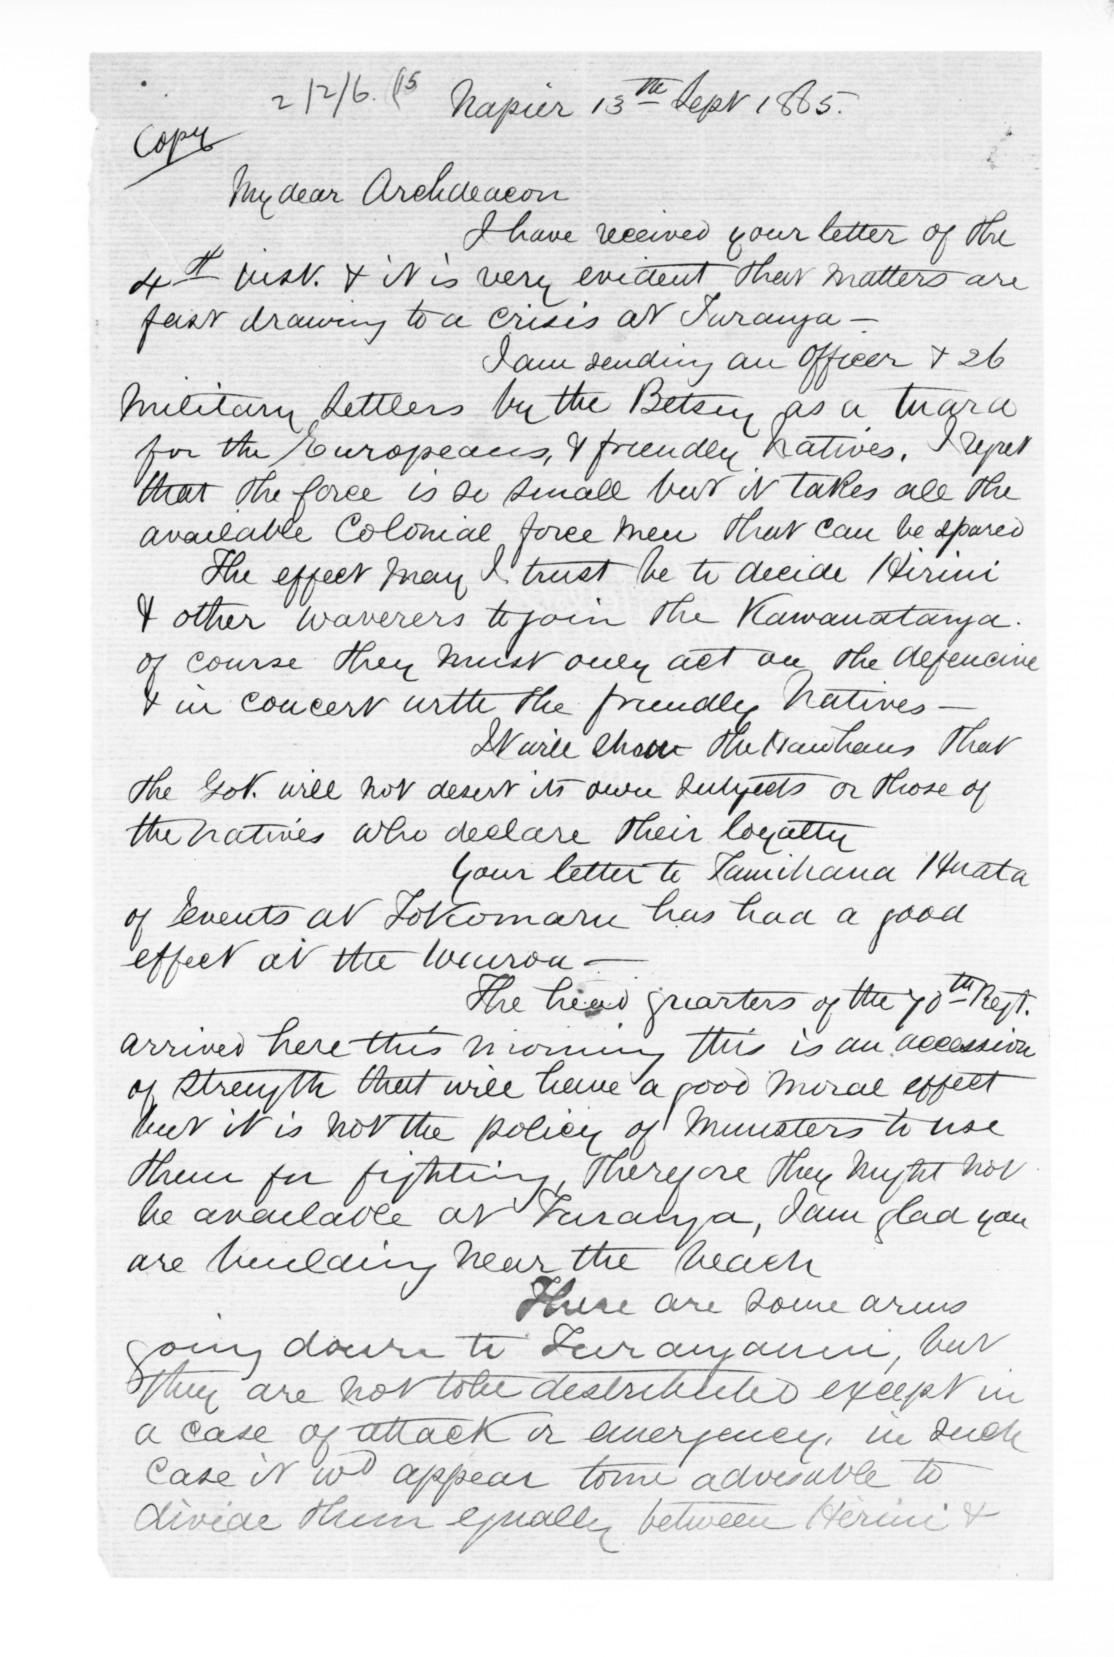 2/2/6. (15
Napier 13th Sept 1865.
Copy
My dear Archdeacon
I have received your letter of the
4th inst. & it is very evident that matters are
fast drawing to a crisis at Turanga —
I am sending an Officer & 26
Military Settlers by the Betsey as a Guard
for the Europeans, & friendly Natives. I regret
that the force is so small but it takes all the
available Colonial force men that can be spared
The effect may I trust be to decide Hirini
& other waverers to join the Kawanatanga.
of course they must only act on the defencive
& in concert with the friendly Natives —
It will show the Hauhaus that
the Govt. will not desert its own subjects or those of
the natives who declare their loyalty
Your letter to Tamihana Huata
of Events at Tokomaru has had a good
effect at the Wairoa —
The head quarters of the 70th Regt.
arrived here this morning this is an accession
of strength that will have a good moral effect
but it is not the policy of Ministers to use
them for fighting, therefore they might not
be available at Turanga, I am glad you
are building near the beach
There are some arms
going down to Turanganui, but
they are not to be distributed except in
a case of attack or emergency. in such
case it wd appear to me advisable to
divide them equally between Hirini &